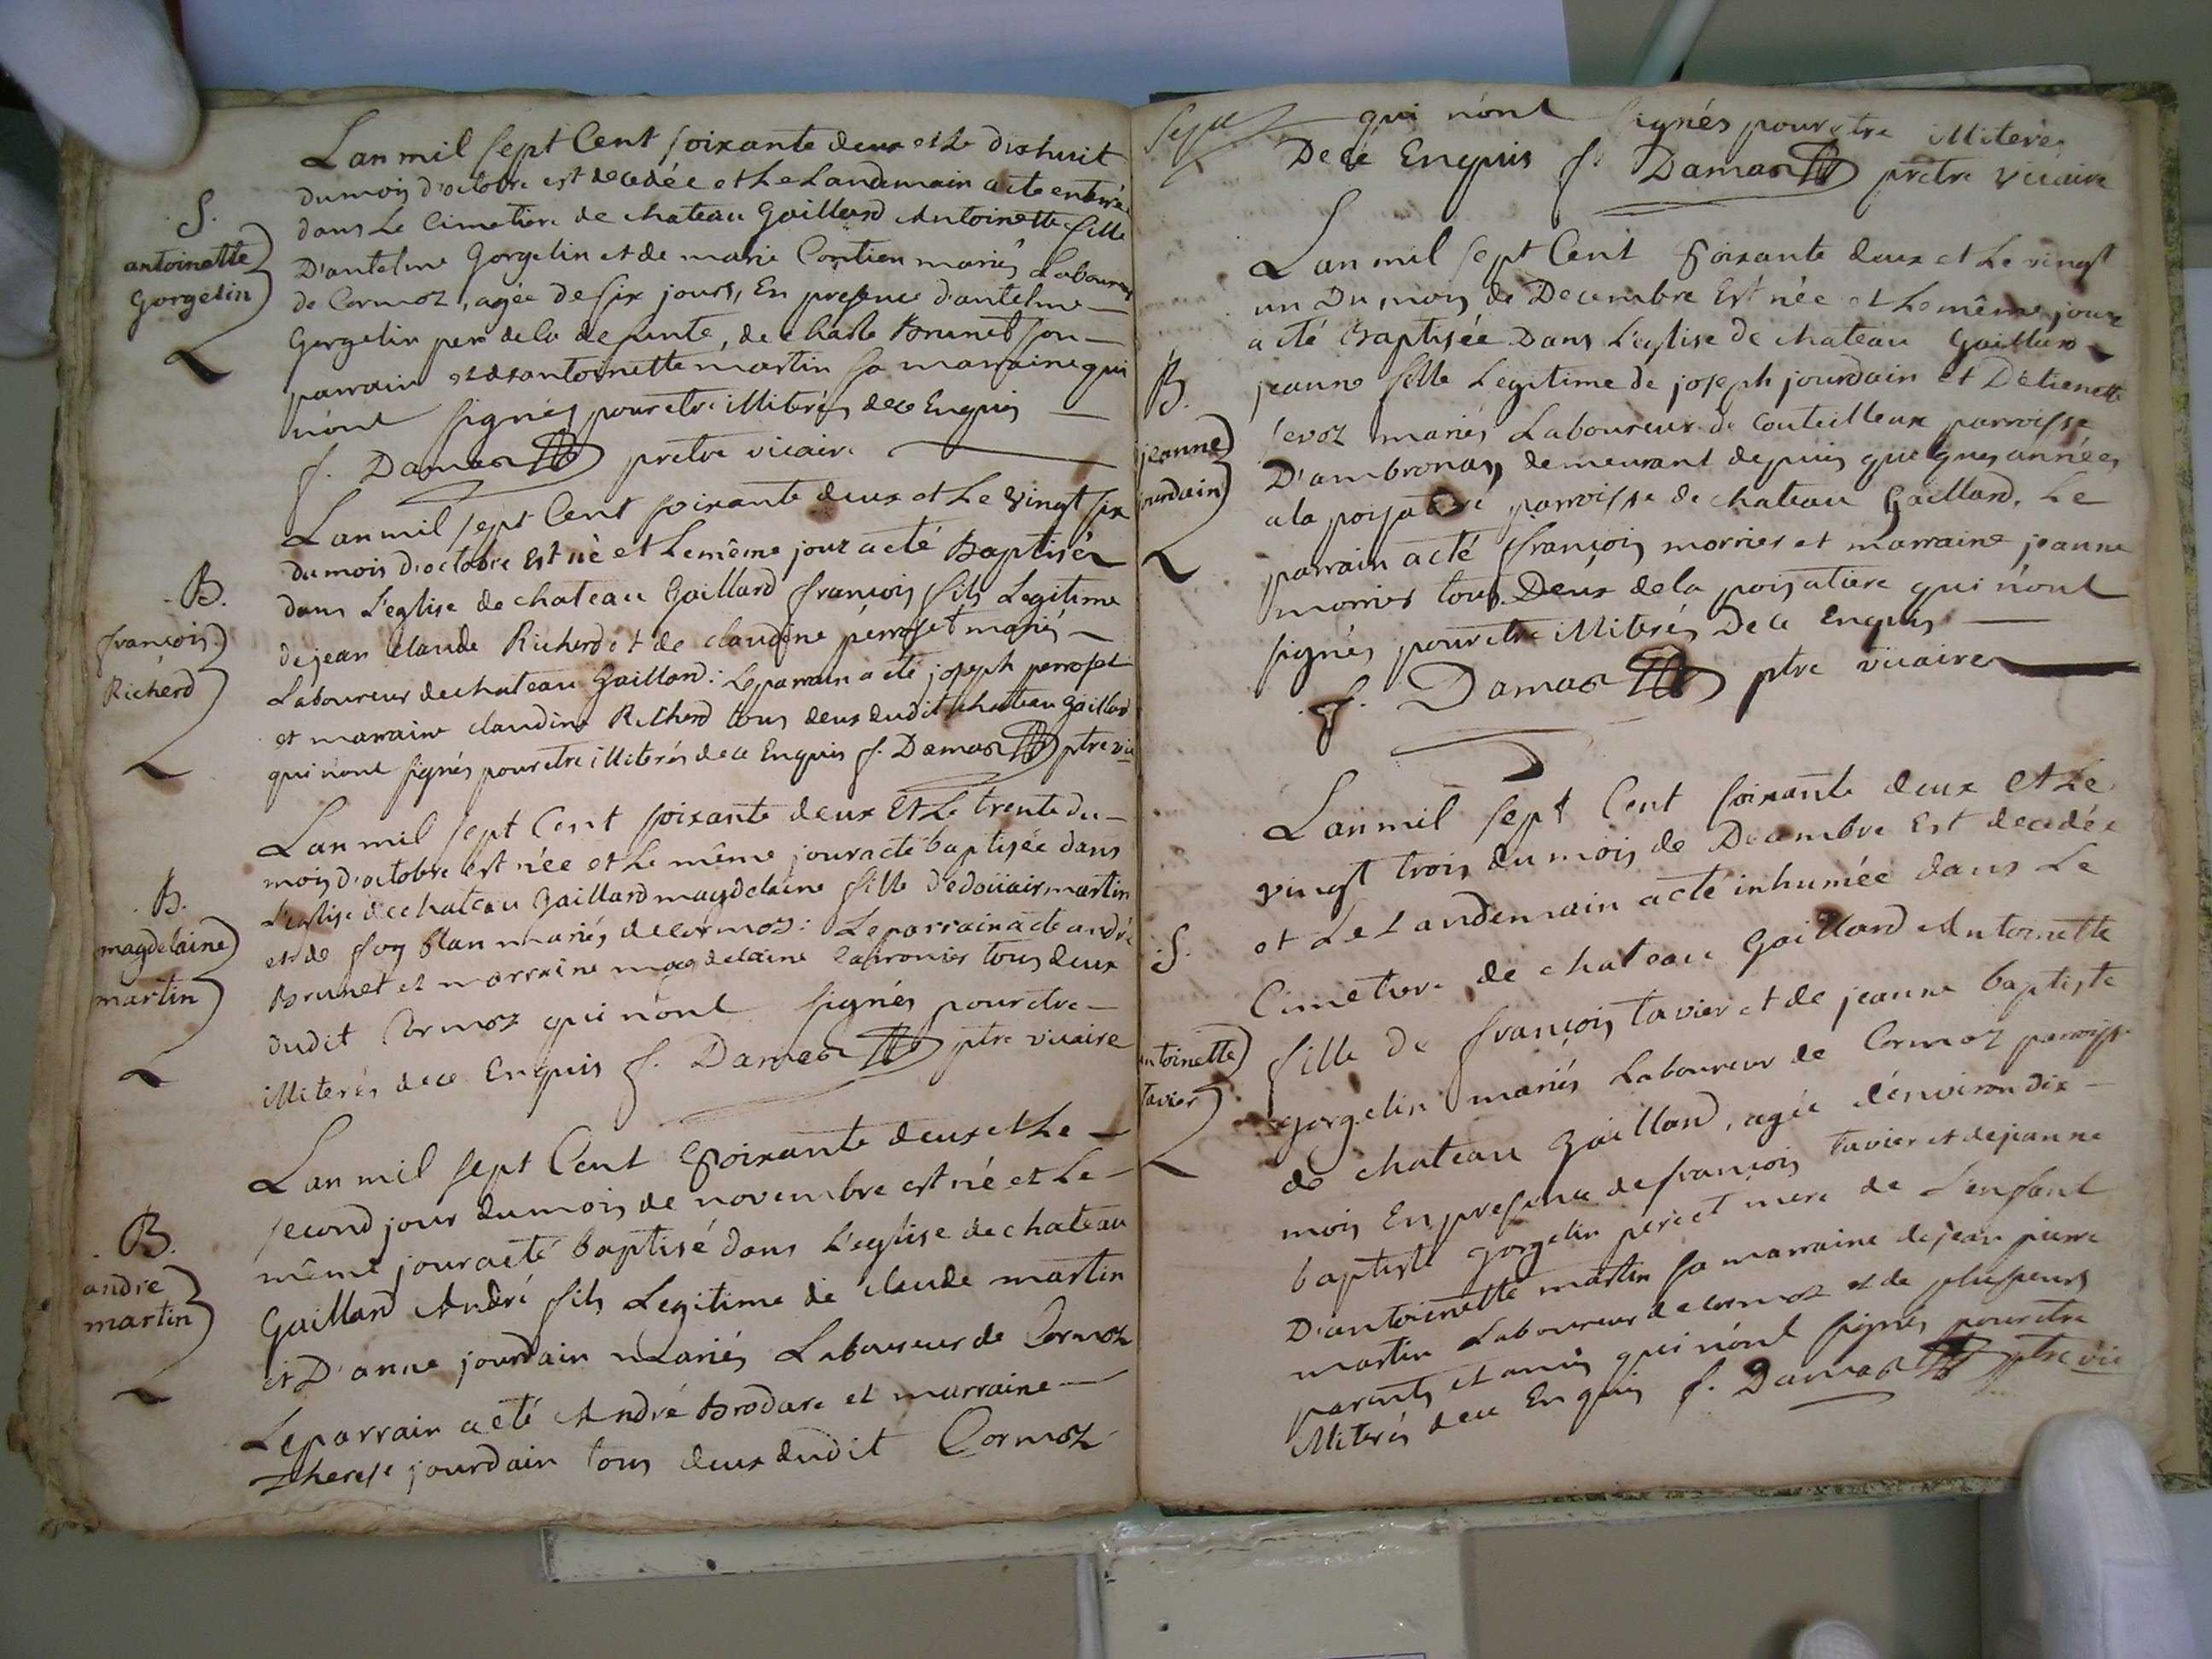 S.
antoinette
Gorgelin
Lan mil sept Cent soixante deux et Le dixhuit
du mois d'octobre est decedée et Le Landemain a ete enterrée
dans Le Cimetiere de chateau Gaillard Antoinette fille
D'antelme Gorgelin et de marie Contien mariés Laboureur
de Cormoz, agée de six jours, En presence d'antelme
Gorgelin pere de la defunte, de charle Brunet son
parrain et dantoinette martin sa marraine qui
n'ont signés pour etre illiterés de ce Enquis
f. Damas pretre vicaire
B.
françois
Richerd
Lan mil sept Cent soixante deux et Le vingt six
du mois d'octobre Est né et Le même jour a eté Baptisé
dans L'eglise de chateau Gaillard françois fils Legitime
de jean claude Richerd et de claudine perroset mariés
Laboureur de chateau Gaillard: Le parrain a eté joseph perroset
et marraine claudine Richerd tous deux dudit chateau Gaillard
qui n'ont signés pour etre illiterés de ce Enquis f. Damas ptre vic
B.
magdelaine
martin
Lan mil sept Cent soixante deux Et Le trente du
mois d'octobre est née et Le même jour a eté baptisée dans
L'eglise de chateau Gaillard magdelaine fille d'edoüair martin
et de foy blan mariés de cormoz: Le parrain a ete andré
Brunet et marraine magdelaine tous deux
dudit Cormoz qui n'ont signés pour etre
illiterés de ce Enquis f. Damas ptre vicaire
B.
andre
martin
Lan mil sept Cent soixante deux et Le
second jour du mois de novembre est né et Le
même jour a eté baptisé dans L'eglise de chateau
Gaillard André fils Legitime de claude martin
et D'anne jourdain mariés Laboureur de Cormoz
Le parrain a eté André Brodare et marraine
Therese jourdain tous deux dudit Cormoz
qui n'ont signés pour etre illiterés
De ce Enquis f. Damas pretre vicaire
B.
jeanne
jourdain
Lan mil sept Cent soixante deux et Le vingt
un Du mois de Decembre Est née et Le même jour
a eté Baptisée Dans L'eglise de chateau Gaillard
jeanne fille Legitime de joseph jourdain et D'etienette
sevoz mariés Laboureur de Couteilleux parroisse
D'ambronas, demeurant depuis quelques années
a la poisatiere parroisse de chateau Gaillard. Le
parrain a eté françois morrier et marraine jeanne
morrier tous Deux de la poisatiere qui n'ont
signés pour etre illiterés De ce Enquis
f. Damas ptre vicaire
S.
antoinette
tavier
Lan mil sept Cent soixante deux Et Le
vingt trois du mois de Decembre Est decedée
et Le Landemain a eté inhumée dans Le
Cimetiere de chateau Gaillard Antoinette
fille de françois tavier et de jeanne baptiste
gorgelin mariés Laboureur de Cormoz parroisse
de chateau Gaillard, agée d'environ dix
mois En presence de françois tavier et de jeanne
baptiste gorgelin pere et mere de L'enfant
D'antoinette martin sa marraine de jean pierre
martin Laboureur de cormoz et de plusieurs
parents et amis qui n'ont signés pour etre
illiterés de ce Enquis f. Damas ptre vic